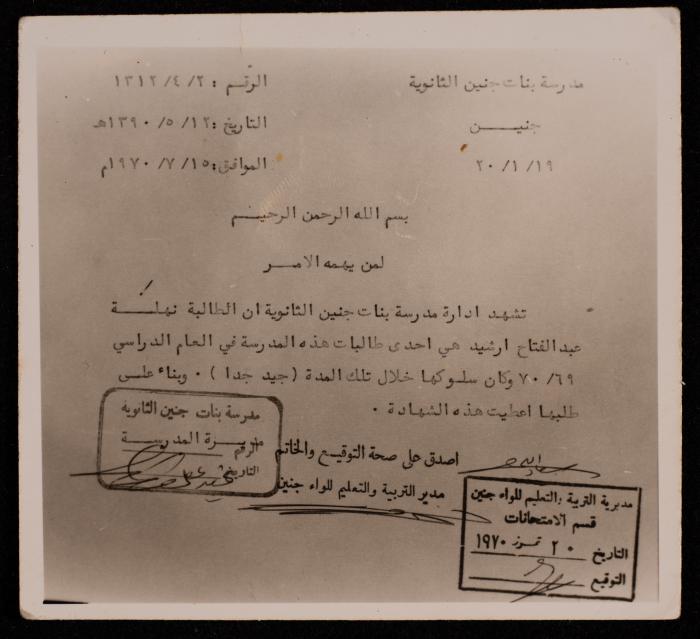 مدرسة بنات جنين الثانوية
جنيــن
٢٠/١/١٩
الرقــم : ١٣١٢/٤/٢
التاريخ : ١٣٩٠/٥/١٢هـ
الموافق: ١٩٧٠/٧/١٥م
بسم الله الرحمن الرحيــم
لمن يهمه الامــر
تشهد ادارة مدرسة بنات جنين الثانوية ان الطالبة نهلــة
عبدالفتاح ارشيد هي احدى طالبات هذه المدرسة في العام الدراسي
٧٠/٦٩ وكان سلوكها خلال تلك المدة (جيد جدا ) ٠ وبناء على
طلبها اعطيت هذه الشهادة ٠
مدرسة بنات جنين الثانويه
مديــرة المدرســة
الرقم
التاريخ
اصدق على صحة التوقيــع والخاتم
مدير التربية والتعليم للواء جنين
مديرية التربية والتعليم للواء جنين
قسم الامتحانات
التاريخ ٢٠ تموز ١٩٧٠
التوقيع